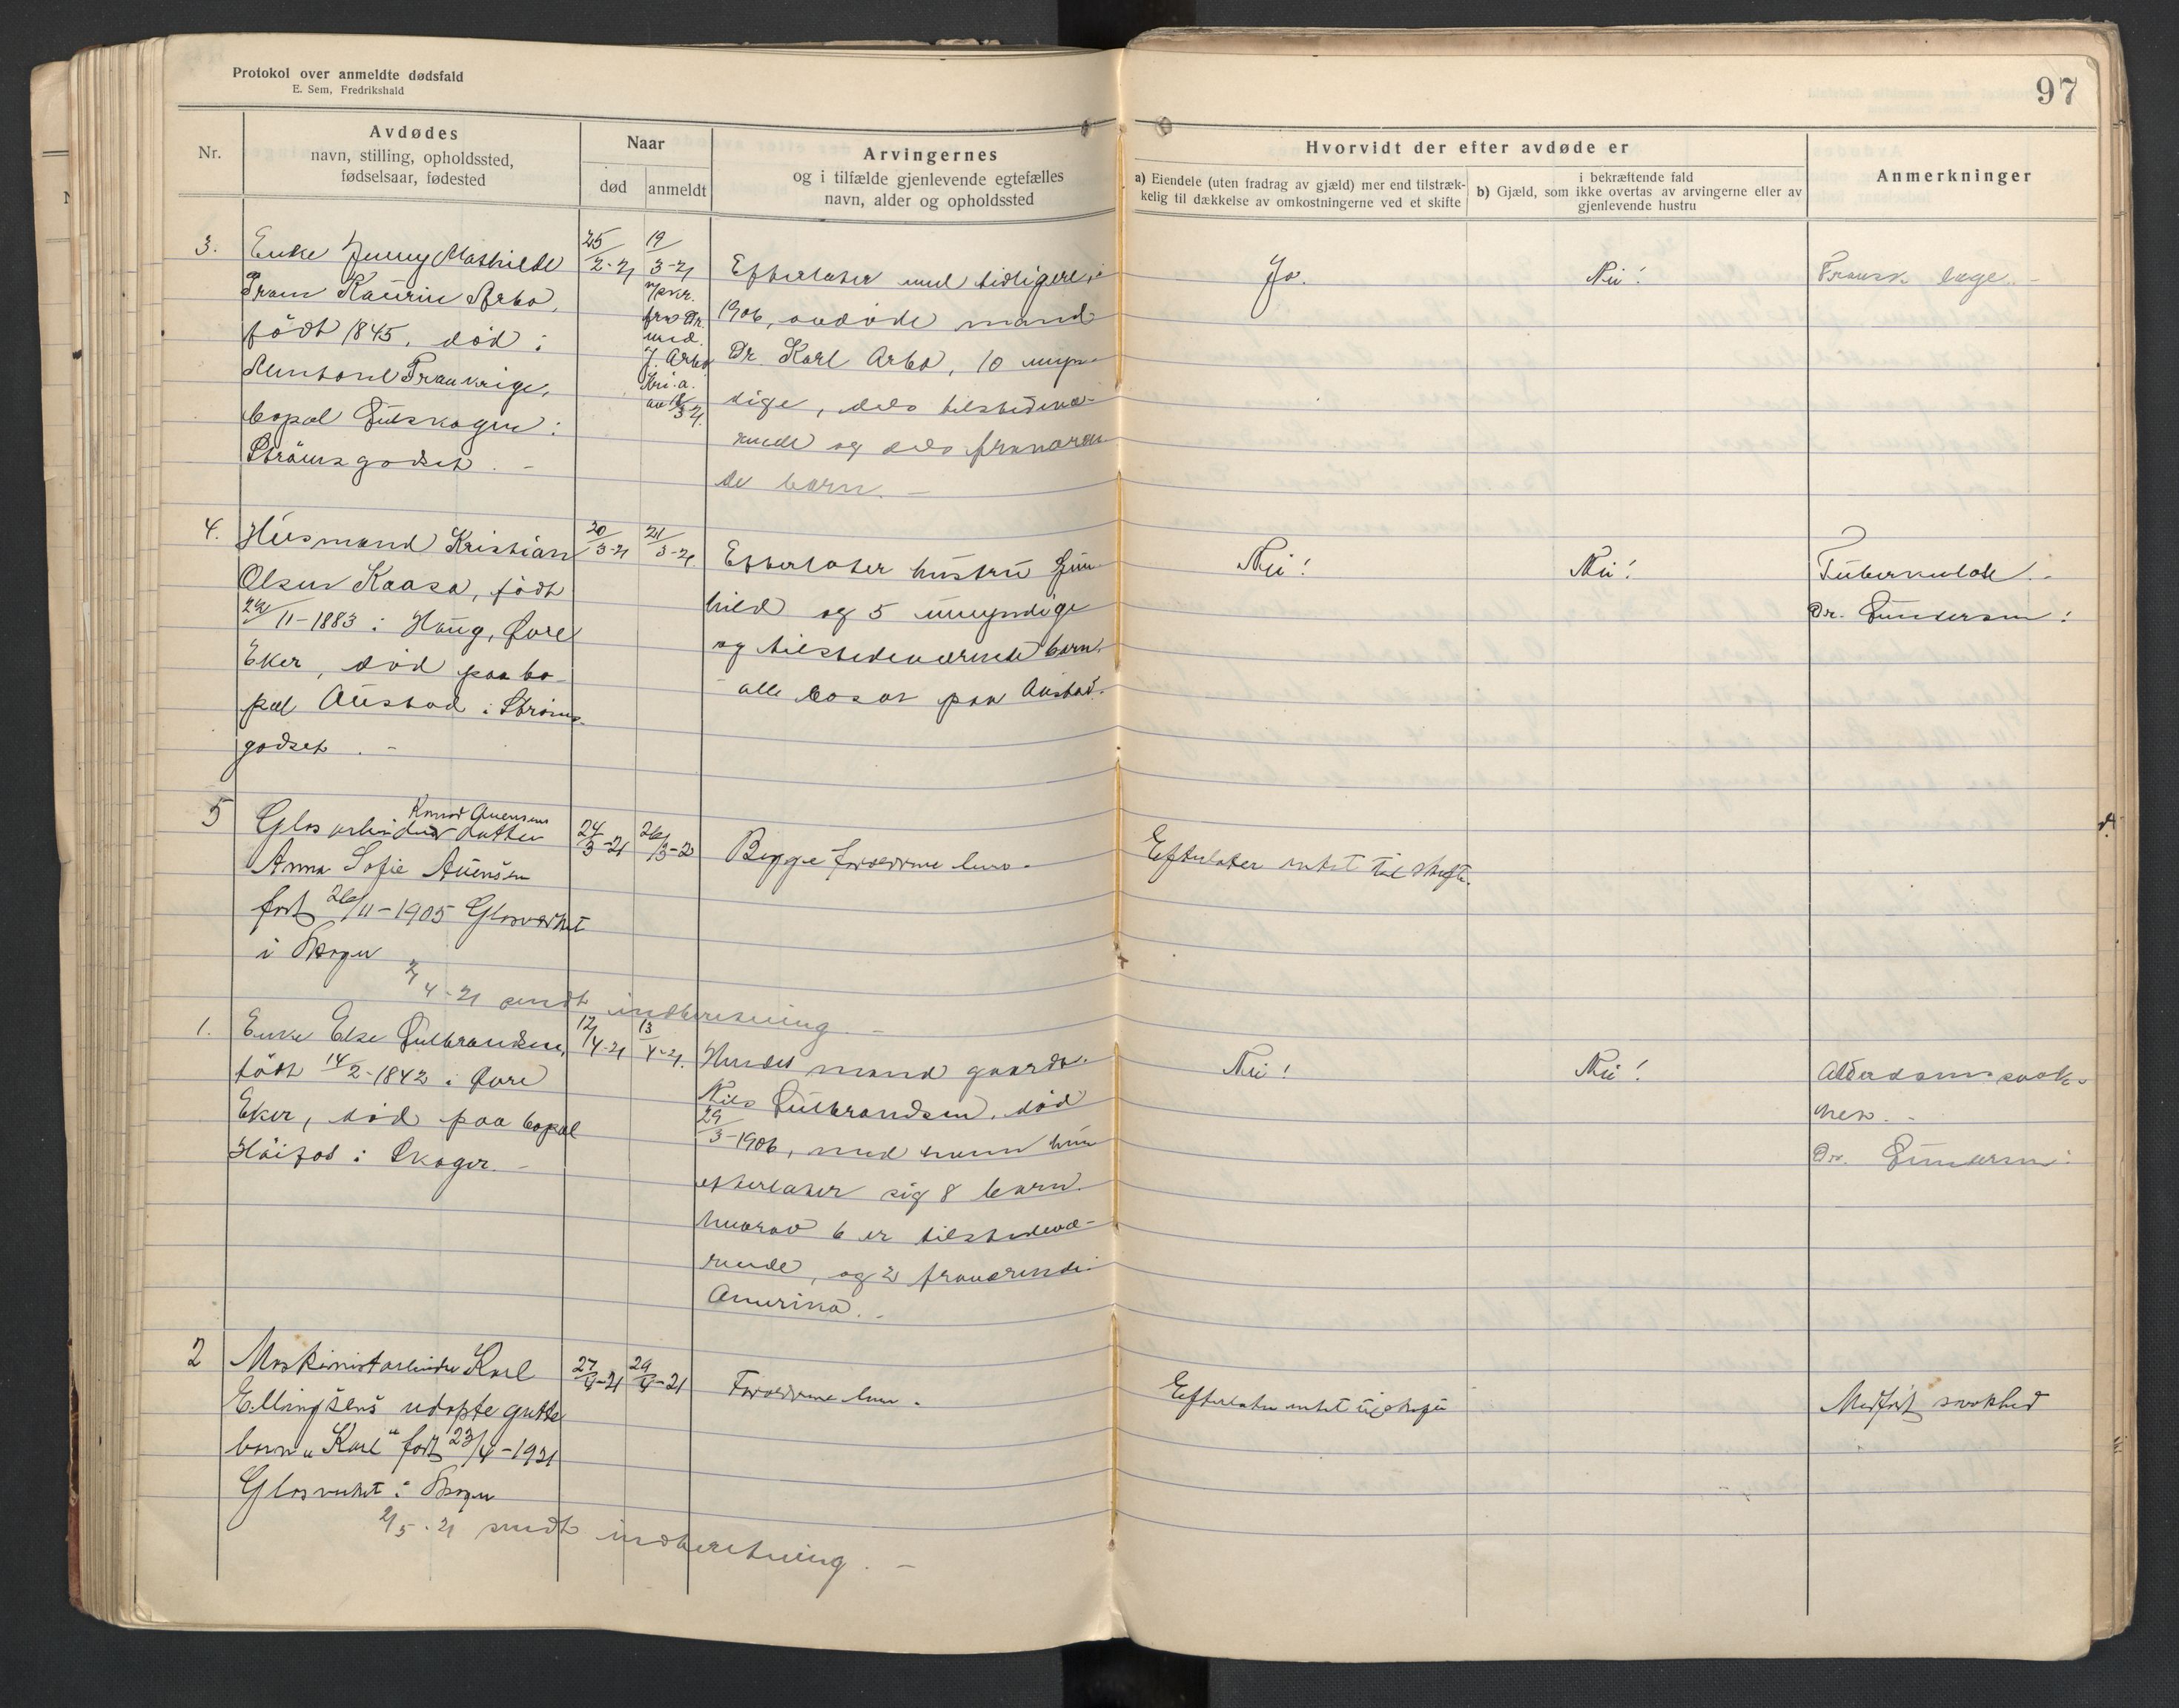 Protokol over anmeldte dødsfald
E. Sem, Fredrikshald
97
Nr.
Avdødes
navn, stilling, opholdssted,
fødselsaar, fødested
Naar
død
anmeldt
Arvingernes
og i tilfælde gjenlevende egtefælles
navn, alder og opholdssted
Hvorvidt der efter avdøde er
a) Eiendele (uten fradrag av gjæld) mer end tilstræk-
kelig til dækkelse av omkostningerne ved et skifte
i bekræftende fald
b) Gjæld, som ikke overtas av arvingerne eller av
gjenlevende hustru
Anmerkninger
3.
Enke Jenny Mathilde
Pram Kaurin Arbo,
født 1845, død i
Mentone Frankrige,
bopæl Gulskogen i
Strømsgodset. -
25/2-21
19/3-21
pr.
fra Dr.
med.
J. Arbo
Kr.a.
av 18/3-21.
Efterlater med tidligere, i
1906, avdøde mand
Dr. Karl Arbo, 10 myn-
dige, dels tilstedevæ-
rende og dels fraværen-
de børn. -
Ja.
Nei!
Fransk læge. -
4.
Husmand Kristian
Olsen Kaasa, født
22/11-1883 i Haug, Øvre
Eker, død paa bo-
pæl Austad i Strøms-
godset. -
20/3-21
21/3-21
Efterlater hustru Gun-
hild og 5 umyndige
og tilstedeværende børn.
- alle bosat paa Austad.
Nei!
Nei!
Tuberkulose. -
Dr. Gundersen:
5
Knud Auensens
Glasarbeider datter
Anna Sofie Auensen
født 26/11-1905 Glasverket
i Skoger
24/3-21
26/3-21
Begge forældrene lever.
Efterlater intet til skifte.
2/4-21 sendt indberetning. -
1.
Enke Else Gulbrandsen,
født 14/2-1842 i Øvre
Eker, død paa bopæl
Høifos i Skoger. -
12/4-21
13/4-21.
Hendes mand gaardbr.
Nils Gulbrandsen, død
29/3-1906, med hvem hun
efterlater sig 8 børn.
hvorav 6 er tilstedevæ-
rende, og 2 fraværende i
Amerika. -
Nei!
Nei!
Alderdomssvak-
het. -
Dr. Gundersen:
2
Maskinistarbeider Karl
Ellingsens udøpte gutte
barn "Karl" født 23/4-1921
Glasverket i Skoger
27/4-21
29/4-21
Forældrene lever.
Efterlater intet til skifte
Medfødt svakhed
2/5-21 sendt indberetning. -